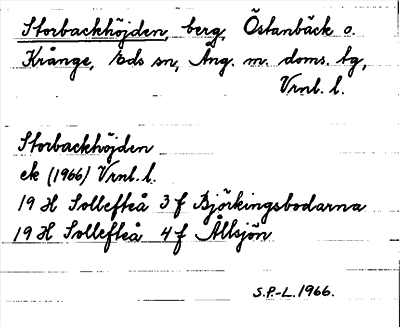 Storbackhöjden, berg, Östanbäck o.
Krånge, Eds sn, Ång. m. doms. tg,
Vrnl. l.
Storbackhöjden
ek (1966) Vrnl. l.
19 H Sollefteå 3 f Björkingsbodarna
19 H Sollefteå 4 f Ållsjön
S.P.-L. 1966.